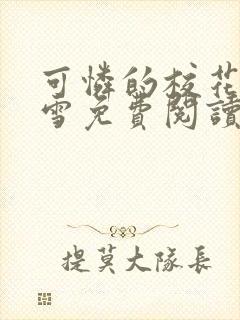 可憐的校花
雪免費閱讀
提莫大隊長